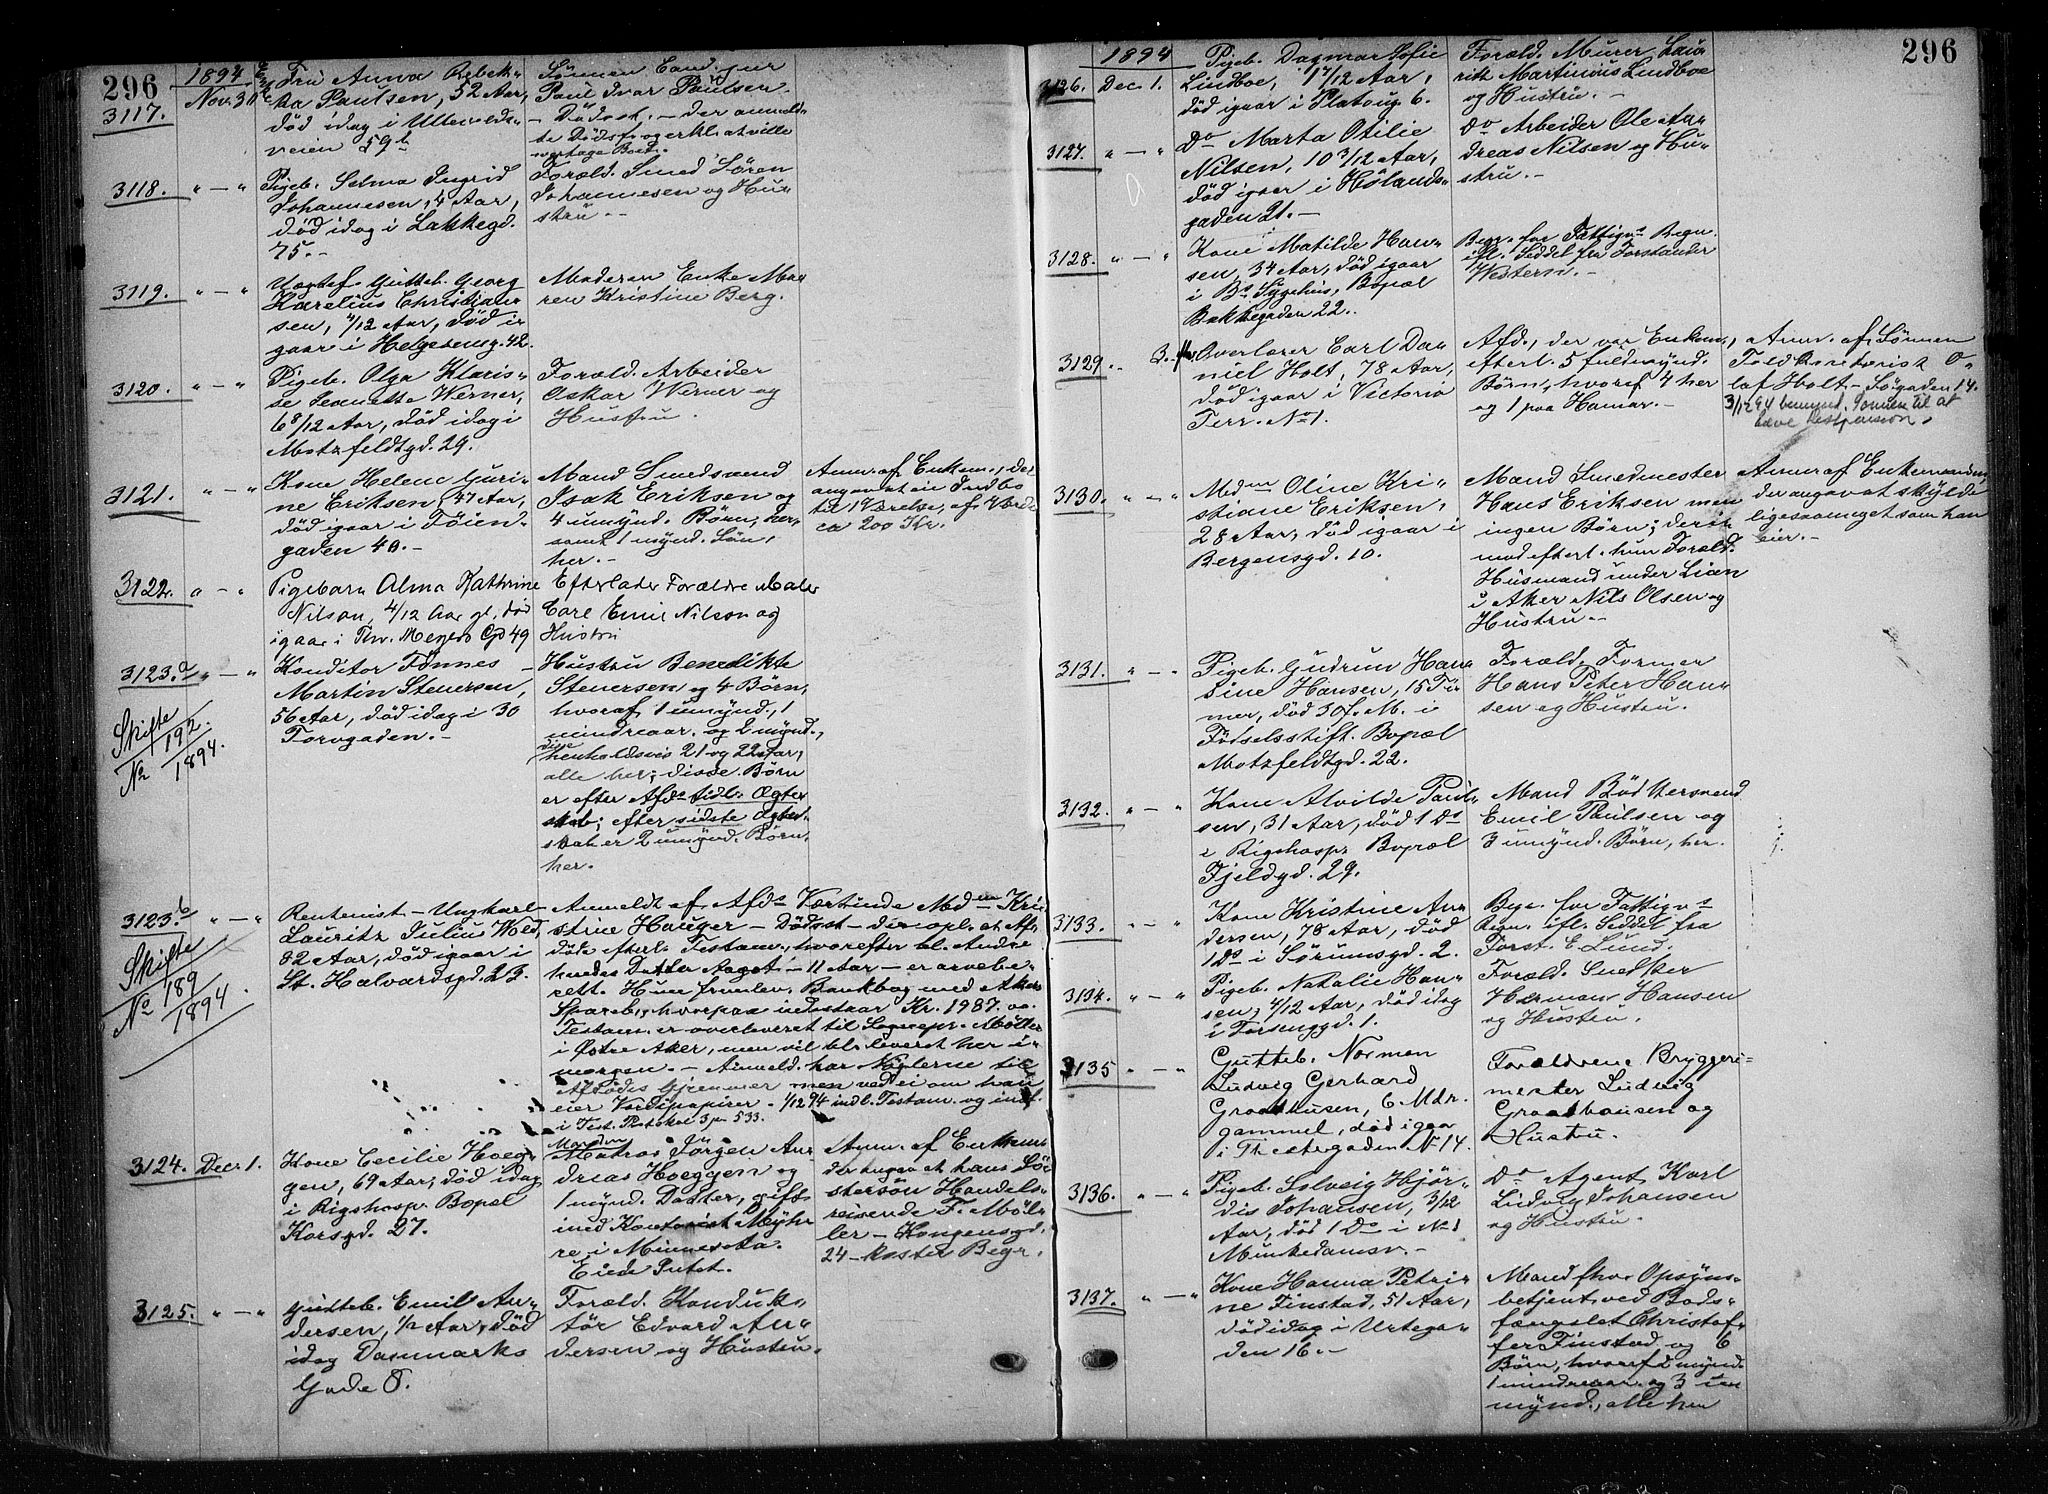 296
1894
Nov. 30
3117.
Fru Anna Rebek-
ka Paulsen, 52 Aar,
død idag i Ullevolds-
veien 59b
Sønnen Cand. jur
Paul Ivar Paulsen.
– Dødsat. – der anmeld-
te Dødsf. og erkl. at ville
overtage Boet.
3118. " — "
Pigeb. Selma Ingrid
Johannesen, 4 Aar,
død idag i Lakkegd.
75. –
Foræld. Smed Søren
Johannesen og Hu-
stru. –
3119. " — "
Uægtef. Gutteb. Georg
Karelius Christian-
sen, 4/12 Aar, død i-
gaar i Helgesensg. 42.
Moderen Enke Ma-
ren Kristine Berg.
3120. " — "
Pigeb. Olga Klaris-
se Jeanette Werner,
6 8/12 Aar, død idag i
Motzfeldtgd. 29.
Foræld. Arbeider
Oskar Werner og
Hustru.
3121. " — "
Kone Helene Guri-
ne Eriksen, 47 Aar,
død igaar i Tøien-
gaden 40. –
Mand Smedsvend
Isak Eriksen og
4 umynd. Børn, her,
samt 1 mynd. Søn,
her. –
Anm. af Enkem., der
angav at eie Indbo
til 1 Værelse, af Værdi
ca 200 Kr.
3122. " — "
Pigebarn Alma Kathrine
Nilson, 4/12 Aar gl., død
igaar i Thv. Meyers Gd 49
Efterlader Forældre Maler
Carl Emil Nilson og
Hustru
3123.a " — "
Skifte
No 192/1894.
Konditor Tønnes
Martin Stenersen,
56 Aar, død idag i 30
Torvgaden. –
Hustru Benedikte
Stenersen og 4 Børn,
hvoraf 1 umynd., 1
mindreaar. og 2 mynd.,
henholdsvis 21 og 22 Aar,
alle her; disse Børn
er efter Afds tidl. Ægte-
skab; efter sidste Ægte-
skab er 2 umynd. Børn,
her.
3123.b " — "
Skifte
No 189/1894.
Rentenist – Ungkarl
Lauritz Julius Wold,
82 Aar, død igaar i
St. Halvardsgd. 23.
Anmeldt af Afds Værtinde Mdm Kri-
stine Hauger – Dødsat – der opl. at Af-
døde efterl. Testam., hvorefter bl. Andre
hendes Datter Aagot – 11 Aar – er arvebe-
rett. Hun fremlev. Bankbog med Akers
Spareb., hvorpaa indestaar Kr. 1987.00
Testam. er overleveret til Sognepr. Møller
i Østre Aker, men vil bl. leveret her i-
morgen. – Anmeld. har Nøglerne til
Afdødes Gjemmer men ved ei om han
eier Værdipapirer. 1/12 94 indl. Testam. og indf.
i Test. Protokol 3 p. 533.
3124. Decr 1.
Kone Cecilie Hoeg-
gen, 69 Aar, død idag
i Rigshosp. Bopæl
Korsgd. 27.
Manden
Matros Jørgen An-
dreas Hoeggen og
1 mynd. Datter, gift
med Kontorist Myhr-
re i Minnesota.
Anm. af Enkem.
der angav at hans Sø-
stersøn Handels-
reisende F. Møl-
ler – Kongensgd.
24 – koster Begr.
3125. " — "
Gutteb. Emil An-
dersen, 1/2 Aar, død
idag Danmarks
Gade 8.
Foræld. Konduk-
tør Edvard An-
dersen og Hustru.
296
1894
3126. Dec. 1.
Pigeb. Dagmar Sofie
Lindboe, 1 7/12 Aar,
død igaar i Platousg. 6.
Foræld. Murer Lau-
ritz Martinius Lindboe
og Hustru. –
3127. " — "
Do Marta Otilie
Nilsen, 10 3/12 Aar,
død igaar i Hølands-
gaden 21. –
Do Arbeider Ole An-
dreas Nilsen og Hu-
stru. –
3128. " — "
Kone Matilde Han-
sen, 34 Aar, død igaar
i Bs Sygehus, Bopæl
Bakkegaden 22.
Begr. for Fattigvs Regn.
ifl. Seddel fra Forstander
Western. –
3129. 3.
Overlærer Carl Da-
niel Holt, 78 Aar,
død igaar i Victoria
Terr. No 1.
Afd., der var Enkem.,
efterl. 5 fuldmynd.
Børn, hvoraf 4 her
og 1 paa Hamar. –
Anm. af Sønnen
Toldkontorist O-
laf Holt – Søgaden 14.
3/12 94 bemynd. Sønnen til at
hæve Restpension.
3130. " — "
Mdm Oline Kri-
stiane Eriksen,
28 Aar, død igaar i
Bergensgd. 10.
Mand Smedmester
Hans Eriksen men
ingen Børn; deri-
mod efterl. hun Foræld.
Husmand under Lian
i Aker Nils Olsen og
Hustru. –
Anm af Enkemanden,
der angav at skylde
ligesaameget som han
eier. –
3131. " — "
Pigeb. Gudrun Han-
sine Hansen, 15 Ti-
mer, død 30 f. M. i
Fødselsstift. Bopæl
Motzfeldtgd. 22.
Foræld. Former
Hans Peter Han-
sen og Hustru.
3132. " — "
Kone Alvilde Paul-
sen, 31 Aar, død 1 Ds
i Rigshosp. Bopæl
Fjeldgd. 29.
Mand Bødkersvend
Emil Paulsen og
3 umynd. Børn, her.
3133. " — "
Kone Kristine An-
dersen, 78 Aar, død
1 Ds i Sørumsgd. 2.
Begr. for Fattigvs
Regn. ifl. Seddel fra
Forst. E. Lund.
3134. " — "
Pigeb. Natalie Han-
sen, 4/12 Aar, død idag
i Torsenggd. 1.
Foræld. Snedker
Herman Hansen
og Hustru.
3135 " — "
Gutteb. Norman
Ludvig Gerhard
Graathusen, 6 Mdr.
gammel, død igaar
i Theatergaden No 14.
Forældrene Bryggeri-
mester Ludvig
Graathausen og
Hustru.
3136. " — "
Pigeb. Solveig Hjør-
dis Johansen, 3/12
Aar, død 1 Ds i No 1
Munkedamsv. –
Do Agent Karl
Ludvig Johansen
og Hustru.
3137. " — "
Kone Hanna Petri-
ne Finstad, 51 Aar,
død idag i Urtega-
den 16. –
Mand fhv. Opsyns-
betjent ved Bods-
fængslet Christof-
fer Finstad, og 6
Børn, hvoraf 2 mynd.
1 mindreaar. og 3 u-
mynd., alle her